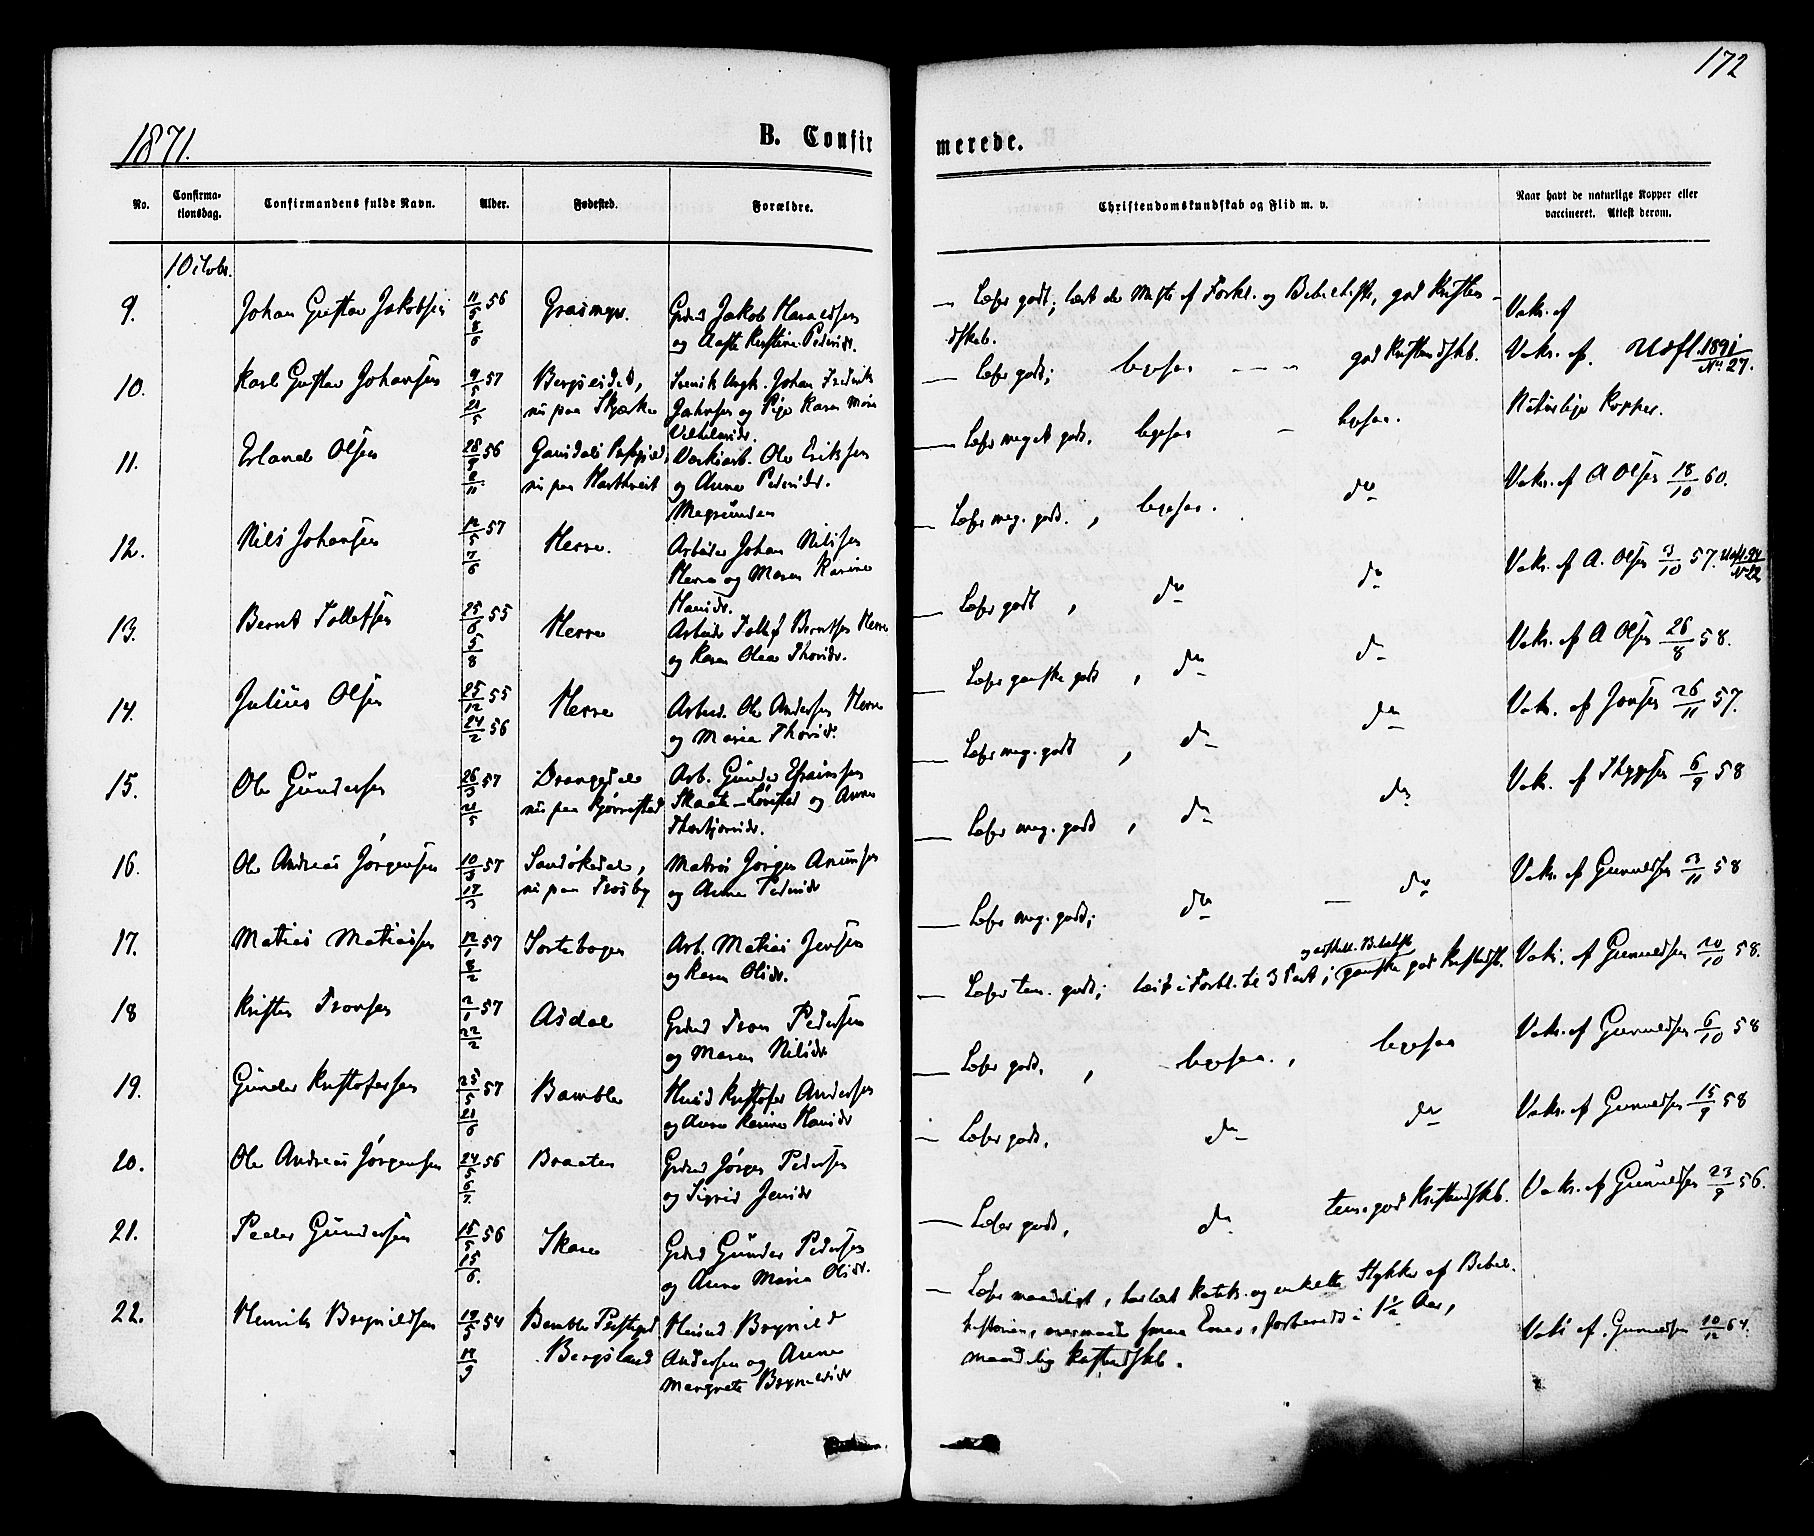 172
1871.
B. Confirmerede.
No.
Confirma-
tionsdag.
Confirmandens fulde Navn.
Alder.
Fødested.
Forældre.
Christendomskundskab og Flid m. v.
Naar havt de naturlige Kopper eller
vaccineret. Attest derom.
10
9. Johan Gustav Jakobsen 11/5 56 8/6 Grasmyr. Grdmd Jakob Haraldsen
og Aaste Kirstine Pedersdr.
— Læser godt; læst det meste af Forkl. og Bibelhist., god Kristen-
dskab.
Vakc. af
10. Karl Gustav Johansen 9/5 57 21/5 Bergseidet,
nu paa Skjærke
Svensk Ungk. Johan Fredrik
Johnsen og Pige Karen Marie
Vilhelmsdr.
— Læser godt; ligesaa — — god Kristendskb. Vakc. af. Udfl. 1891 No. 27.
11. Erland Olsen 28/9 56 Gausdals Præstgjeld,
nu paa Hasthveit
Værksarb. Ole Eriksen
og Anne Pedersdr.
Megrunden
— Læser meget godt, ligesaa — ligesaa. Naturlige Kopper.
12. Nils Johansen 12/5 57 7/6 Herre. Arbeider Johan Nilssen
Herre og Maren Karine
Hansdr.
— Læser meg. godt., ligesaa. do Vakc. af A Olsen 18/10 60.
13. Bernt Tollefsen 25/6 55 5/8 Herre Arbeider Tollef Berntsen Herre
og Karen Olea Thorsdr.
— Læser godt, do do Vakc. af A. Olsen 3/10 57. Udfl. 94 No 22
14. Julius Olsen 25/12 55 24/2 56 Herre Arbeid. Ole Andersen Herre
og Maria Thorsdr.
— Læser ganske godt, do do Vakc. af A Olsen 26/8 58.
15. Ole Gundersen 26/3 57 21/5 Drangedal
nu paa Kjørrestad
Arb. Gunder Efraimsen
Skaate-Løvsted og Anne
Thorbjørnsdr.
— Læser meg. godt, do do Vakc. af Jonsen 26/11 57.
16. Ole Andreas Jørgensen 10/3 57 17/3 Sandøkedal,
nu paa Trosby
Matros Jørgen Anunsen
og Anne Pedersdr
— Læser meg. godt, do do Vakc. af Thygesen 6/9 58
17. Matias Matiassen 12/1 57 8/2 Sortebogen Arb. Matias Jensen
og Karen Olsdr.
— Læser meg. godt; do — do Vakc. af Gunuldsen 3/11 58
18 Kristen Tronsen 2/1 57 22/2 Asdal Grdmd Tron Pedersen
og Maren Nilsdr
— Læser tem. godt; læst i Forkl. til 3 Part, og adskill. Bibelhist.; ganske god Kristendsk. Vakc. af Gunuldsen 20/10 58.
19. Gunder Kristofersen 25/5 57 21/6 Bamble Husmd Kristofer Andersen
og Anne Karine Hansdr
— Læser godt, ligesaa., ligesaa Vakc. af Gunuldsen 6/10 58
20. Ole Andreas Jørgensen 24/5 56 6/7. Braaten Grdmd Jørgen Pedersen
og Sigrid Jensdr
— Læser godt, do do Vakc. af Gunuldsen 15/9 58
21. Peder Gundersen 15/5 56 15/6. Skare Grdmd Gunder Pedersen
og Anne Maria Olsdr.
— Læser godt, do tem. god Kristendskb. Vakc. af Gunuldsen 23/9 56.
22. Henrik Brynildsen 19/5 54 14/9 Bamble Præstegd
Bergsland
Husmd Brynild
Andersen og Anne
Margrete Brynildsdr
— Læser maadeligt, har læst Katek. og enkelte Stykker af Bibel-
historien, overmaade smaa Evner, forberedt i 1½ Aar,
maadelig Kristendskb.
Vakc af. Gunuldsen 10/12 64.